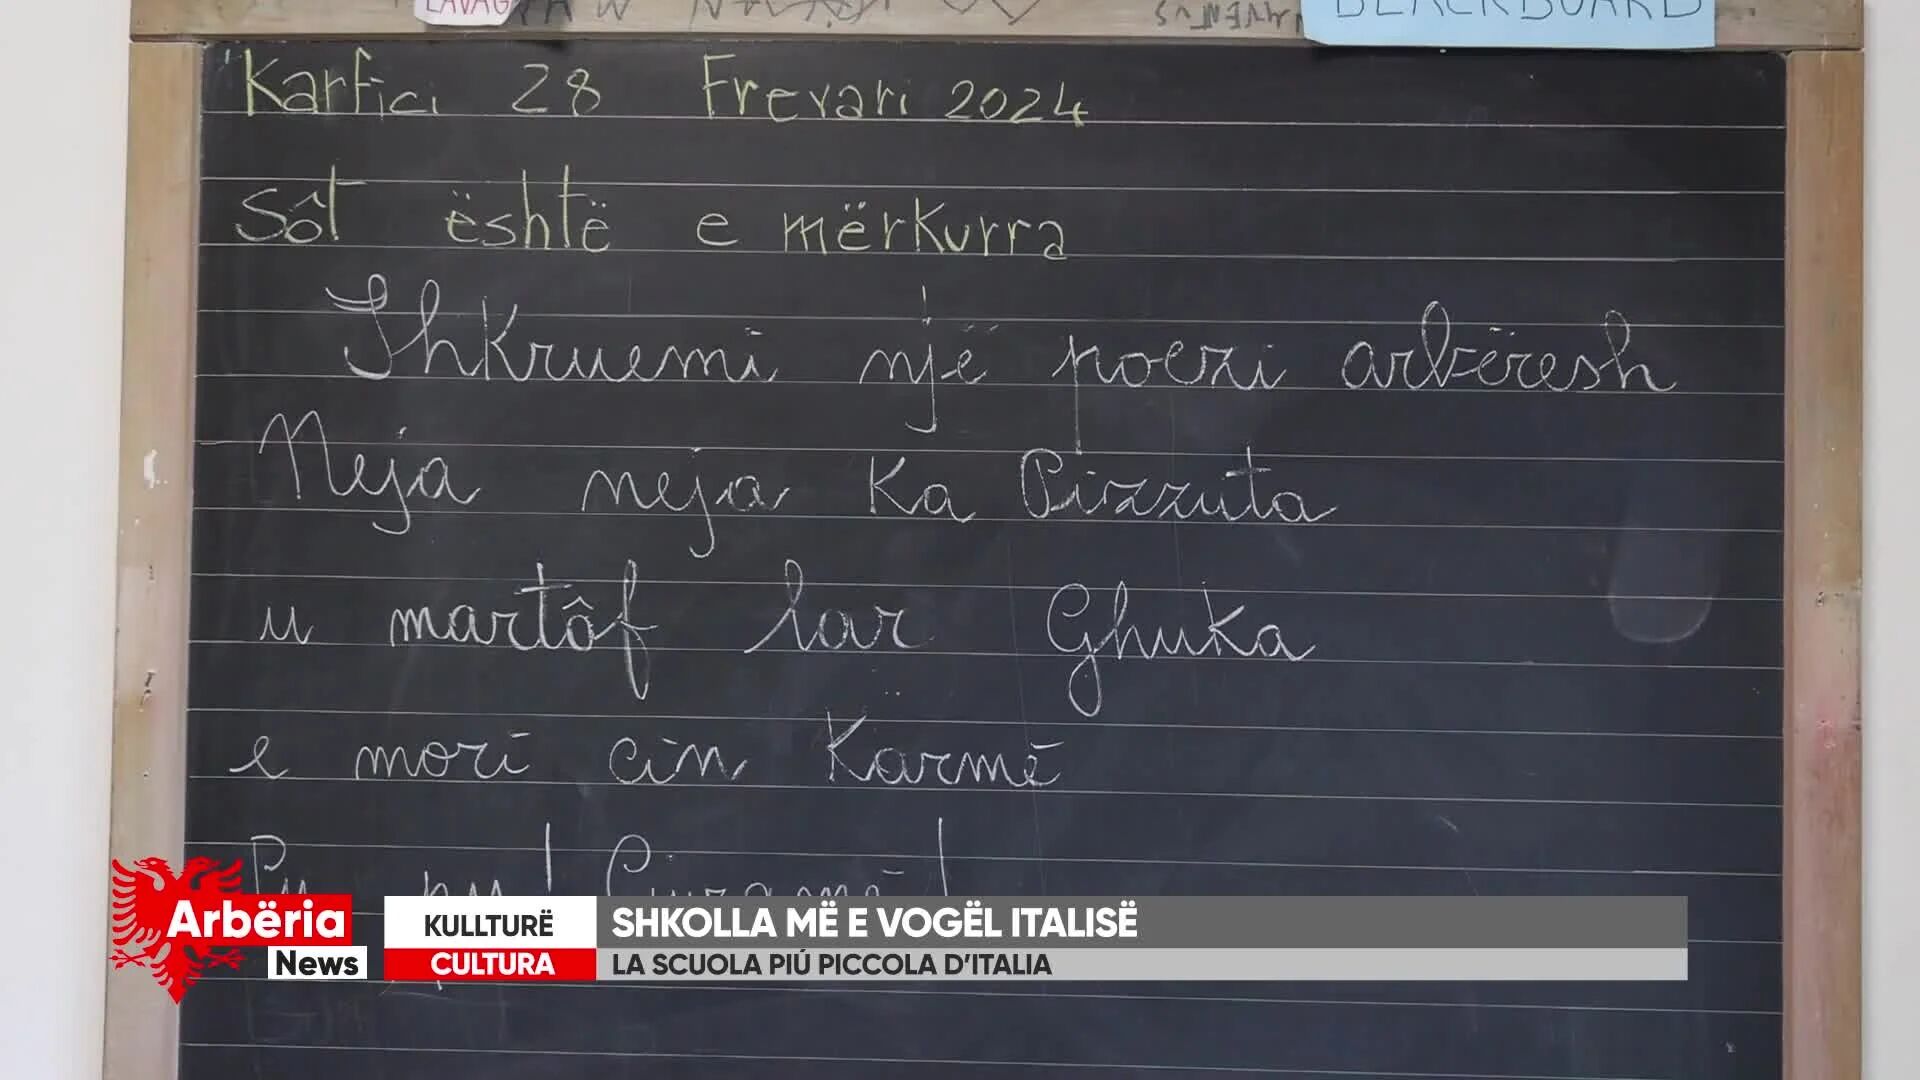 LAVAG
BLACKBOARD
Karfici 28 Frevari 2024
Sôt është e mërkurra
Shkruemi një poezi arbëresh
Neja neja ka Pizzuta
u martôf lar Ghuka
e morî cin Karmë
Pu pu! Ciuramë!
Arbëria
News
KULLTURË
CULTURA
SHKOLLA MË E VOGËL ITALISË
LA SCUOLA PIÚ PICCOLA D'ITALIA